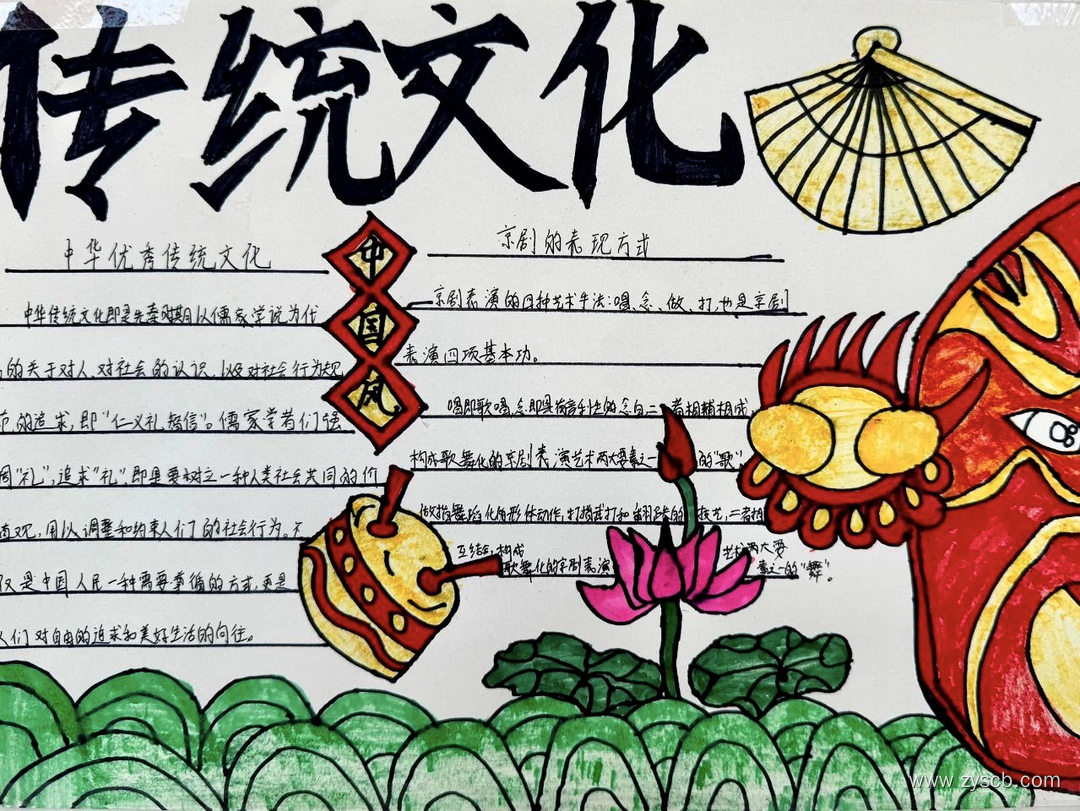 传统文化
中华优秀传统文化
中华传统文化即是先秦时期以儒家学说为代
的关于对人、对社会的认识、以及对社会行为规
的追求,即“仁义礼智信”。儒家学者们强
调“礼”,追求“礼”,即是要树立一种人类社会共同的价
值观,用以调整和约束人们的社会行为。不
仅是中国人民一种需要遵循的方式,更是
人们对自由的追求和美好生活的向往。
中国风
京剧的表现方式
京剧表演的四种艺术手法:唱、念、做、打,也是京剧
表演四项基本功。
唱即歌唱,念即是 的念白,二者相辅相成,
构成歌舞化的京剧表演艺术两大要素之一的“歌”,
做指舞蹈化的形体动作,打指武打和翻跌的技艺,二者相
互结合,构成
歌舞化的京剧表演艺术两大要
素之一的“舞”。
www.zyscb.com